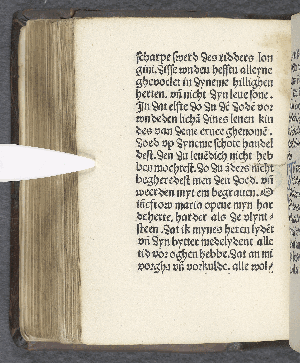 scharpe swerd des ridders lon
gini. disse wnden heffen alleyne
ghevoelet in dyneme hillighen
herten. vñ nicht dyn leue sone.
In dat elfte do du dē dode vor
wnden lichā dines leuen kin
des van deme cruce ghenomē.
doed vp dyneme schote handel
dest. den du leuēdich nicht heb
ben mochtest. do du āders nicht
begheredest men den doed. vñ
werden myt em begrauen. O
iūcfrow maria opene myn har
deherte, harder als de vlynt
steen. dat ik mynes heren lydēt
vñ dyn bytter medelydent alle
tid vor oghen hebbe. dat an mi
vorgha vñ vorkulde. alle wol